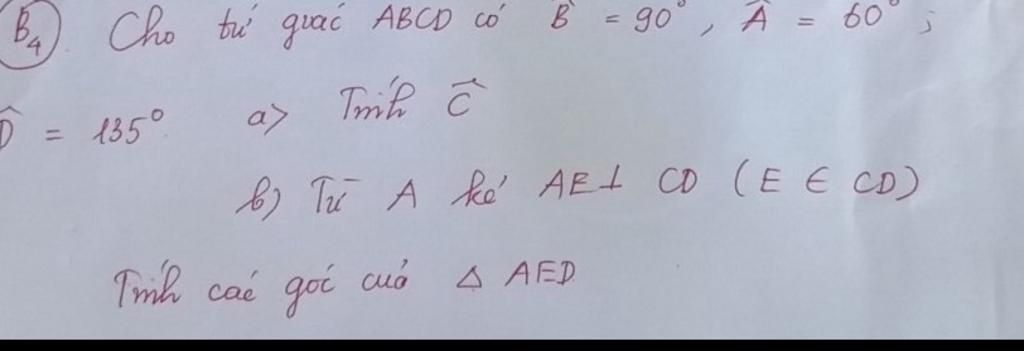 B4 Cho tứ giác ABCD có B̂ = 90°, Â = 60°;
D̂ = 135° a> Tính Ĉ
b) Từ A kẻ AE⊥ CD (E ∈ CD)
Tính các góc của △ AED